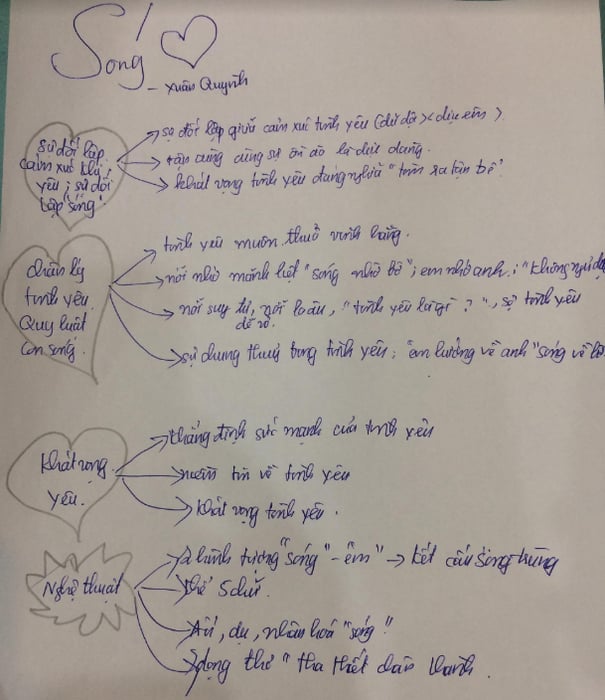 Sóng
- Xuân Quỳnh
sự đối lập
cảm xúc khi
yêu; sự đối
lập "sóng"
sự đối lập giữa cảm xúc tình yêu (dữ dội >< dịu êm).
tận cùng cùng sự ồn ào là dịu dàng.
khát vọng tình yêu đúng nghĩa "tìm ra tận bể"
chân lý
tình yêu
Quy luật
con sóng.
tình yêu muôn thuở vĩnh hằng.
nỗi nhớ mãnh liệt "sóng nhớ bờ"; em nhớ anh; "không ngủ
nỗi suy tư, nỗi lo âu, "tình yêu là gì?", sợ tình yêu
dễ vỡ.
sự chung thuỷ trong tình yêu; "em hướng về anh" "sóng về bờ
khát vọng
yêu.
khẳng định sức mạnh của tình yêu
niềm tin về tình yêu.
khát vọng tình yêu.
Nghệ thuật
2 hình tượng "sóng" - "em" → kết cấu song trùng
thể 5 chữ.
Ẩn dụ, nhân hoá "sóng"
giọng thơ "tha thiết chân thành.